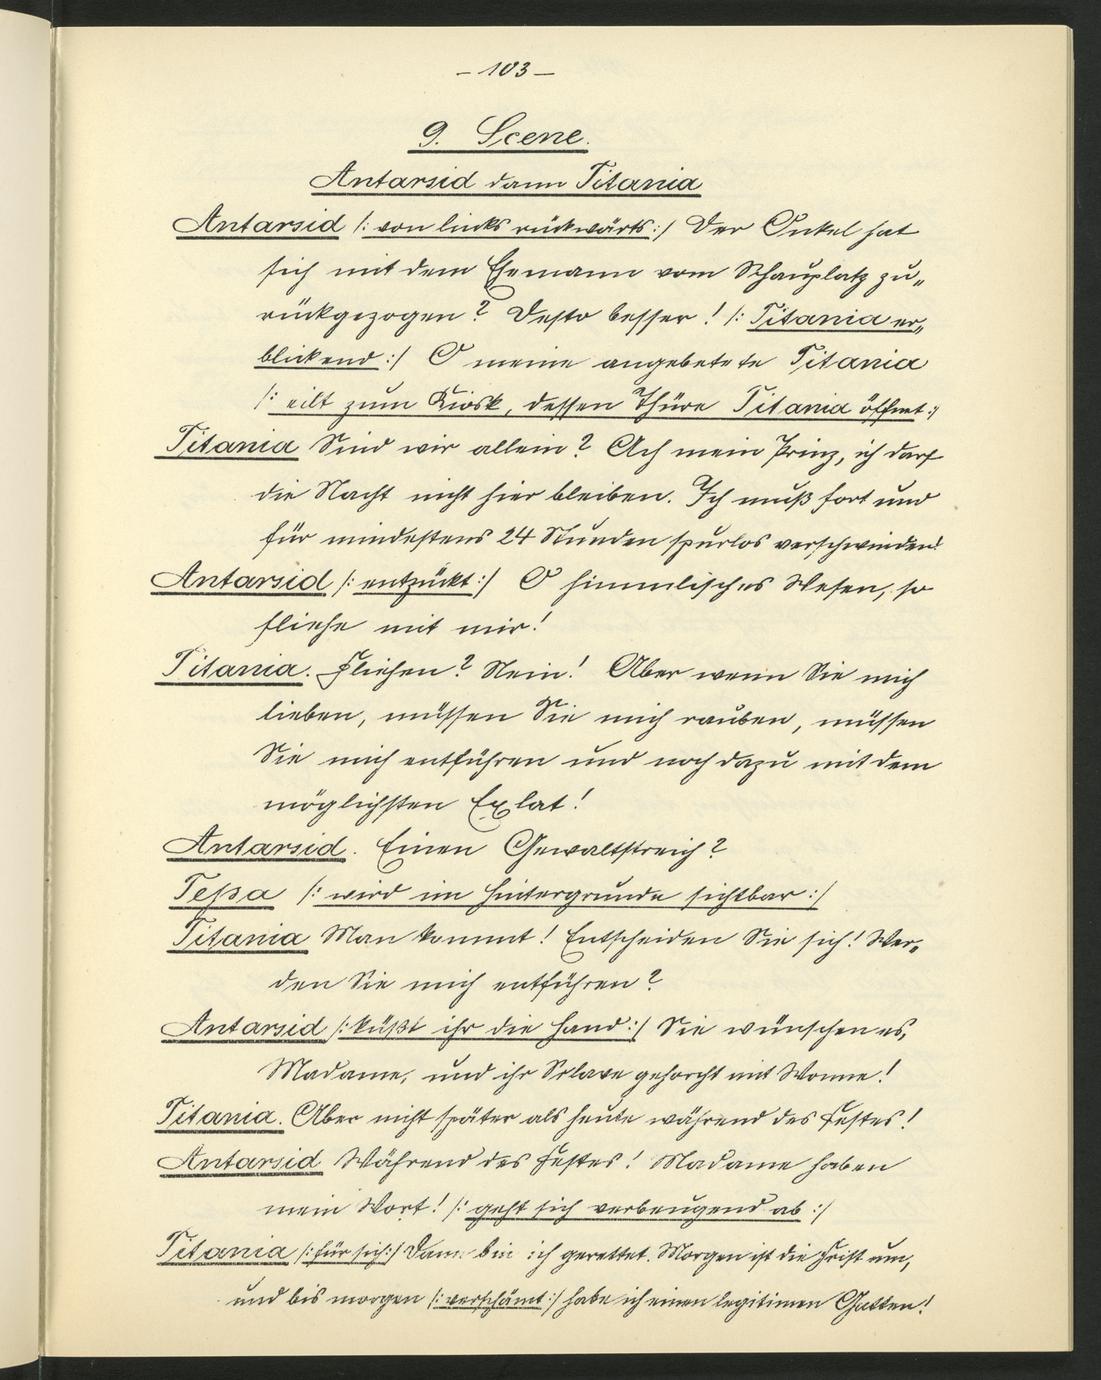 – 103 –
9. Scene.
Antarsid dann Titania
Antarsid /: von links rückwärts :/ Der Onkel hat
sich mit dem Ehemann vom Schauplatz zu„
rückgezogen? Desto besser! /: Titania er„
blickend :/ O meine angebetete Titania
/: eilt zum Kiosk, dessen Thüre Titania öffnet :/
Titania Sind wir allein? Ach mein Prinz, ich darf
die Nacht nicht hier bleiben. Ich muß fort und
für mindestens 24 Stunden spurlos verschwinden!
Antarsid /: entzückt :/ O himmlisches Wesen, so
fliehe mit mir!
Titania. Fliehen? Nein! Aber wenn Sie mich
lieben, müssen Sie mich rauben, müssen
Sie mich entführen und noch dazu mit dem
möglichsten Exlat!
Antarsid. Einen Gewaltstreich?
Teßa /: wird im Hintergrunde sichtbar :/
Titania Man kommt! Entscheiden Sie sich! Wer„
den Sie mich entführen?
Antarsid /: küßt ihr die Hand :/ Sie wünschen es,
Madame, und ihr Sclave gehorcht mit Wonne!
Titania. Aber nicht später als heute während des Festes!
Antarsid Während des Festes! Madame haben
mein Wort! /: geht sich verbeugend ab :/
Titania /: für sich :/ Dann bin ich gerettet. Morgen ist die Frist um,
und bis morgen /: verschämt :/ habe ich einen legitimen Gatten!